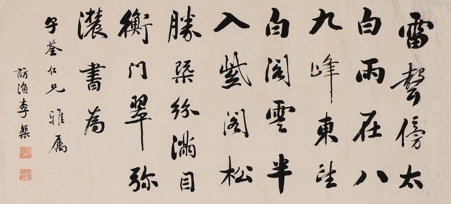 雷聲傍太
白雨在八
九峰東望
白閣雲半
入紫閣松
勝槩紛滿目
衡門翠弥
濃書為
荃仁兄雅屬
訪漁李